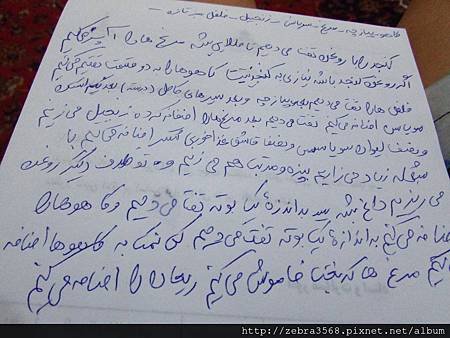 کاهو - پیازچه - مرغ - سویاس - زنجبیل - فلفل - سیر تازه
کنجد را با روغن تفت می دهیم تا طلایی بشه مرغ ها را
اگه روغن کنجد باشه نیازی به کنجد نیست کاهوها را به دو قسمت تقسیم می کنیم
فلفل ها را تفت می دهیم پیازچه و بعد سیرهای کامل
سویاس اضافه می کنیم تفت می دهیم بعد مرغ ها را اضافه کرده زنجبیل می زنیم
و نصف لیوان سویاسس و نصف قاشق غذاخوری شکر اضافه می کنیم با
شعله زیاد می زاریم بپزه و مرتب هم می زنیم و تو ظرف دیگر روغن
می ریزیم داغ شه سیر به اندازه یک بوته تفت می دهیم و کاهوها را
اضافه می کنیم به اندازه یک بوته تفت می دهیم کمی نمک به کاهوها اضافه
می کنیم مرغ ها که پخت خاموش می کنیم ریحان را اضافه می کنیم
http://zebra3568.pixnet.net/album